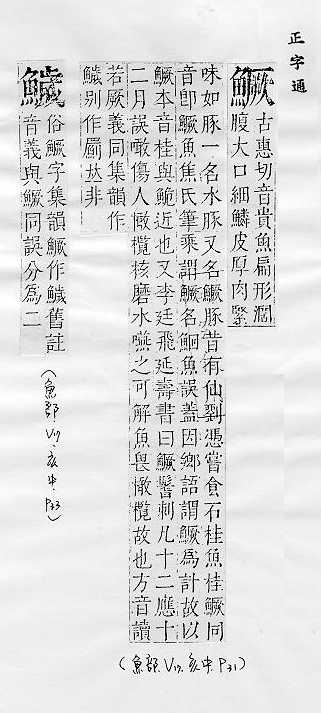 正字通
鱖 古惠切音貴魚扁形濶
腹大口細鱗皮厚肉緊
味如豚一名水豚又名鱖豚昔有仙劉憑嘗食石桂魚桂鱖同
音卽鱖魚焦氏筆乘謂鱖名鮰魚誤蓋因鄉語謂鱖爲計故以
鱖本音桂與鮠近也又李廷飛延壽書曰鱖鬐刺凡十二應十
二月誤啖傷人橄欖核磨水嚥之可解魚畏橄欖故也方音讀
若厥義同集韻作
鱥别作𩽏𠀤非
鱥 俗鱖字集韻鱖作鱥舊註
音義與鱖同誤分爲二
(魚部、V17、亥中、P33)
(魚部、V17、亥中、P31)